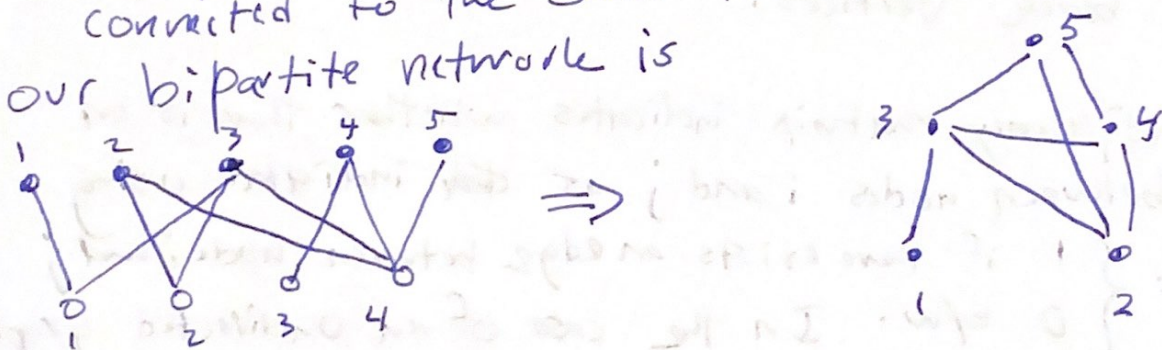 connected to the
our bipartite network is
1 2 3 4 5
1 2 3 4
5
3 4
1 2